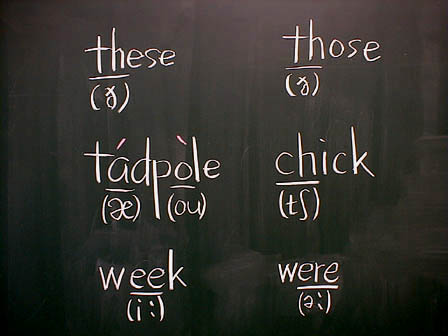 these those
(ʒ) (ʒ)
tádpòle chick
(æ) (ou) (tʃ)
week were
(i:) (ə:)